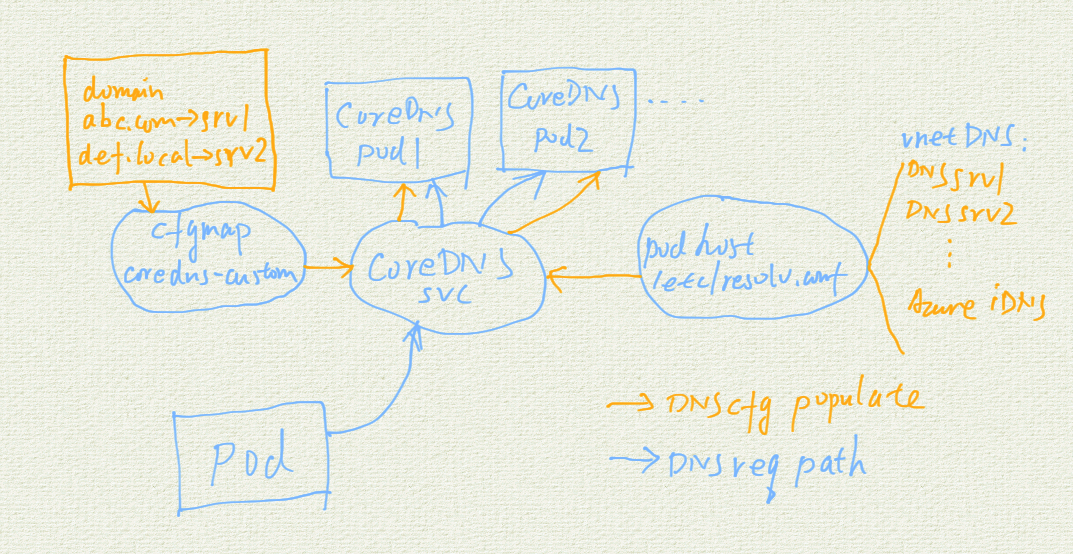 domain
abc.com→srv1
def.local→srv2
CoreDNS
pod1
CoreDNS
pod2
.....
vnetDNS:
DNSsrv1
DNSsrv2
⋮
Azure iDNS
cfgmap
coredns-custom
CoreDNS
svc
pod host
/etc/resolv.conf
Pod
→ DNS cfg populate
→ DNS req path